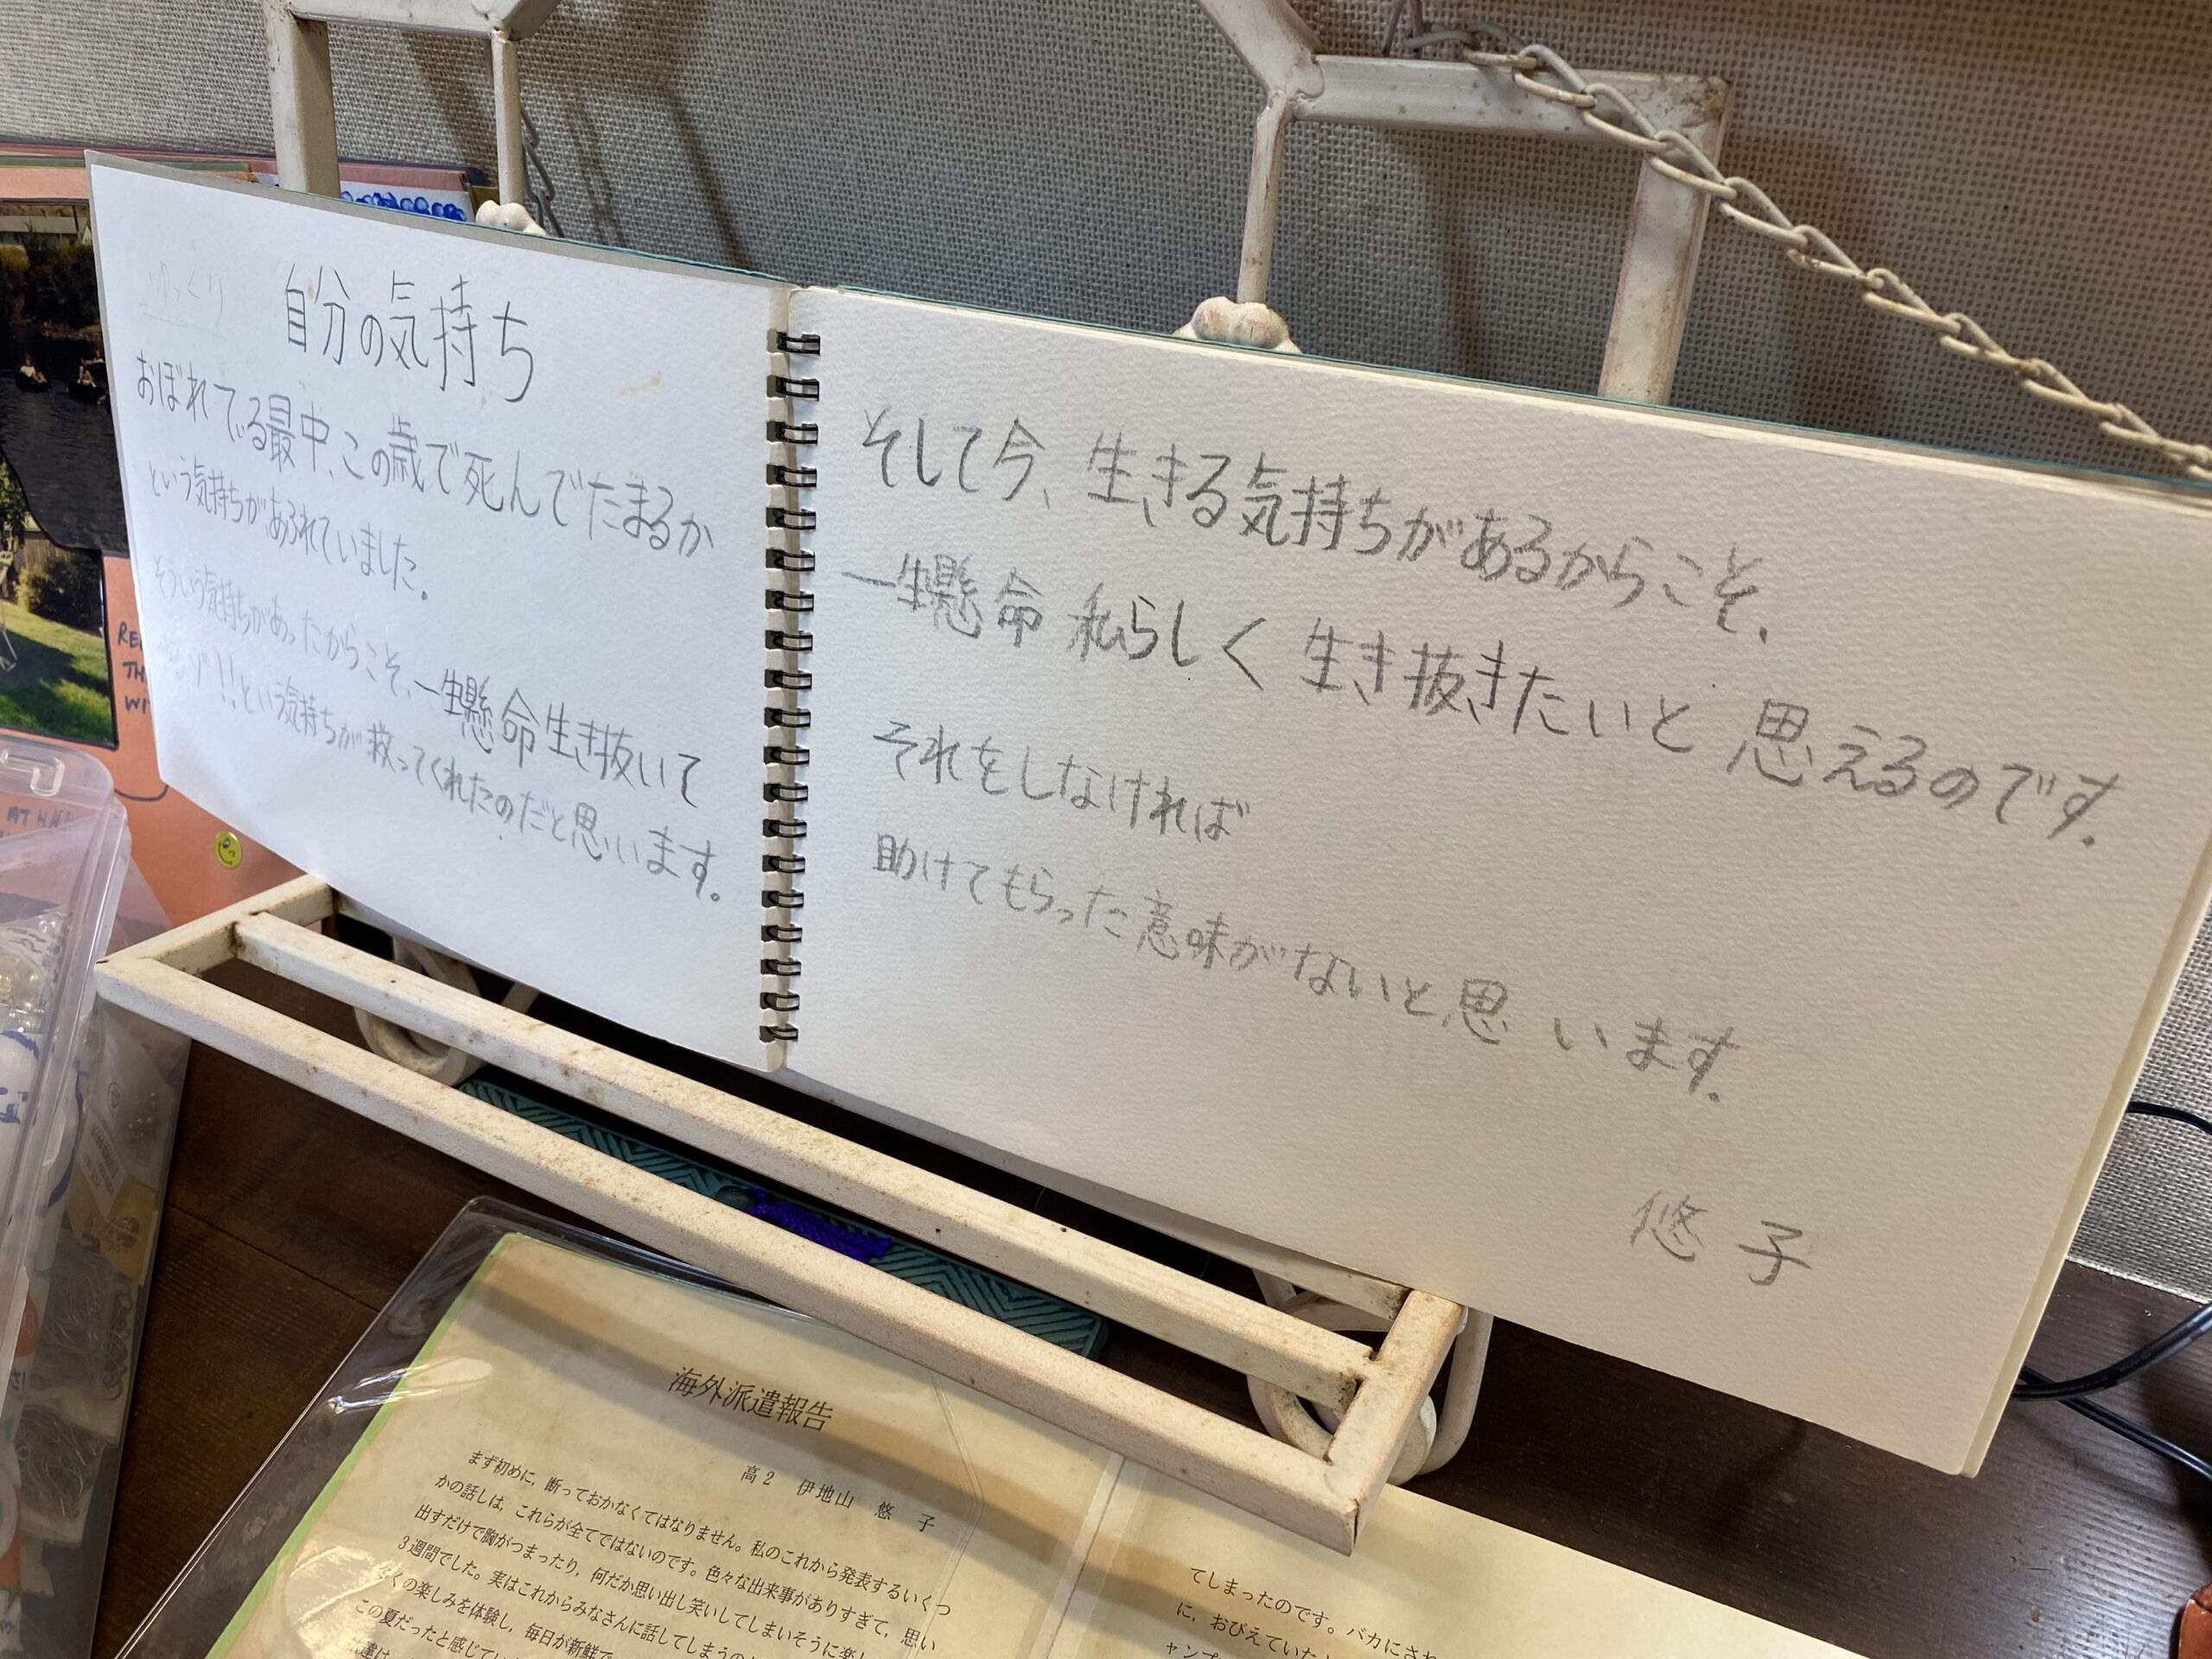 ゆっくり
自分の気持ち
おぼれている最中、この歳で死んでたまるか
という気持ちがあふれていました。
そういう気持ちがあったからこそ、一生懸命生き抜いて
!!という気持ちが救ってくれたのだと思います。
そして今、生きる気持ちがあるからこそ、
一生懸命 私らしく 生き抜きたいと 思えるのです。
それをしなければ
助けてもらった意味がないと思います。
悠子
海外派遣報告
高2 伊地山 悠子
まず初めに，断っておかなくてはなりません。私のこれから発表するいくつ
かの話しは，これらが全てではないのです。色々な出来事がありすぎて，思い
出すだけで胸がつまったり，何だか思い出し笑いしてしまいそうに楽し
3週間でした。実はこれからみなさんに話してしまうの
くの楽しみを体験し，毎日が新鮮で
この夏だったと感じてい
達は
てしまったのです。バカにされ
に，おびえていた
ャンプ